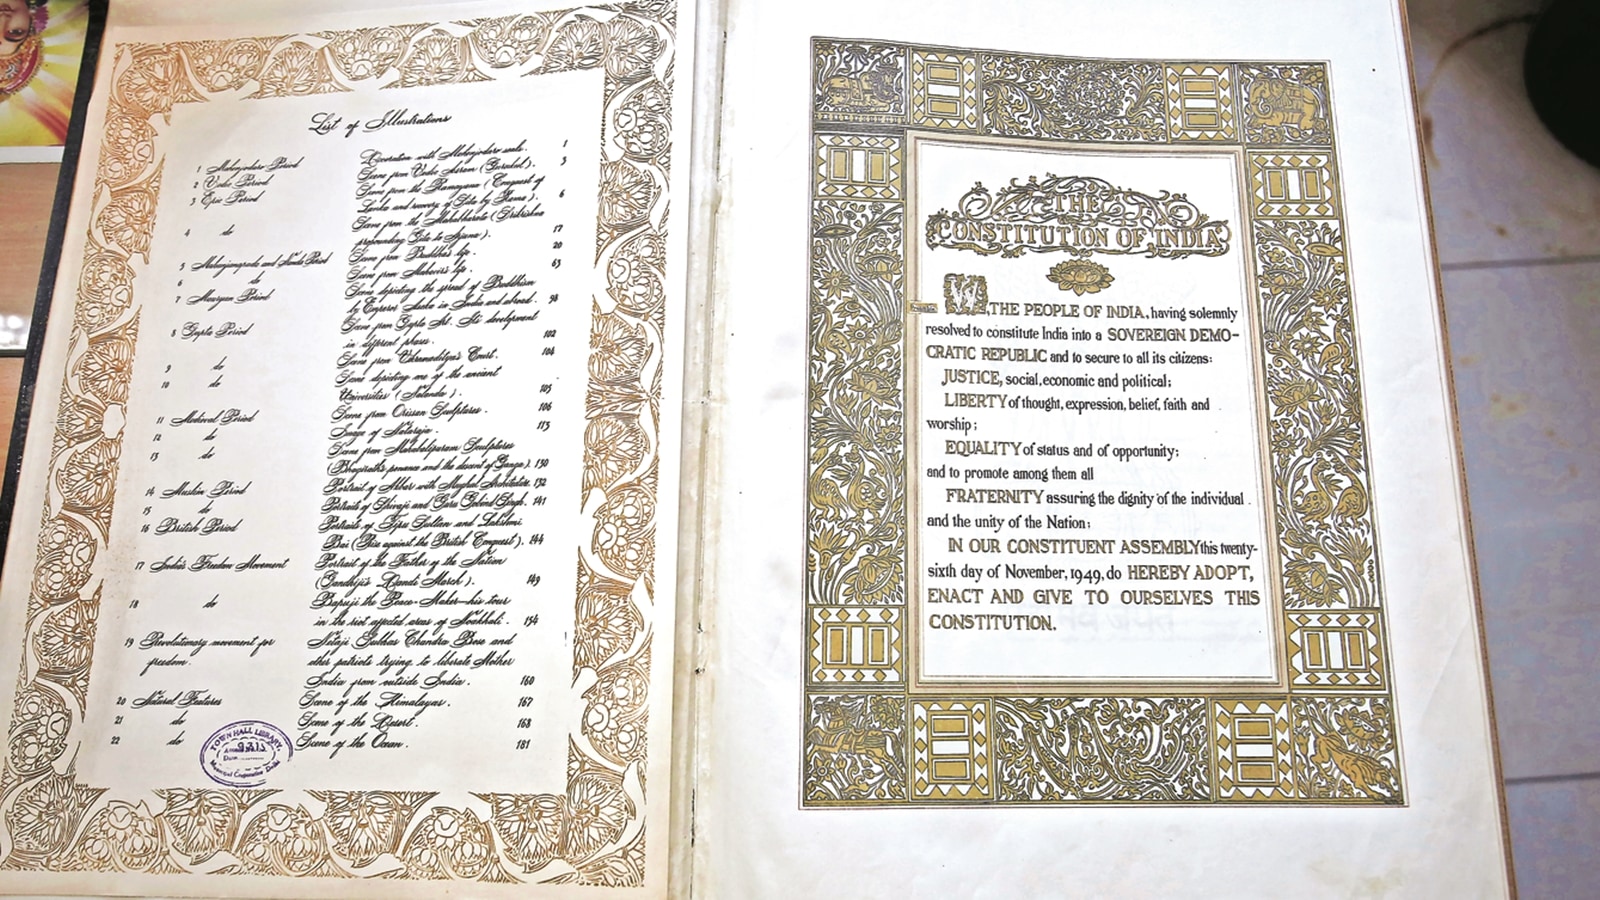 List of Illustrations
1 Mohenjodaro Period Decoration with Mohenjodaro seals. 1
2 Vedic Period Scene from Vedic Asram (Gurukul). 3
3 Epic Period Scene from the Ramayana (Conquest of
Lanka and recovery of Sita by Rama). 6
4 do Scene from the Mahabharata (Srikrishna
propounding Gita to Arjuna). 17
5 Mahajanapada and Nanda Period Scene from Buddha's life. 20
6 do Scene from Mahavir's life. 63
7 Mauryan Period Scene depicting the spread of Buddhism
by Emperor Asoka in India and abroad. 98
8 Gupta Period Scene from Gupta Art. Its development
in different phases. 102
9 do Scene from Vikramaditya's Court. 104
10 do Scene depicting one of the ancient
Universities (Nalanda). 105
11 Medieval Period Scene from Orissan Sculptures. 106
12 do Image of Nataraja. 113
13 do Scene from Mahabalipuram Sculptures
(Bhagirath's penance and the descent of Ganga). 130
14 Muslim Period Portrait of Akbar with Mughal Architecture. 132
15 do Portraits of Shivaji and Guru Gobind Singh. 141
16 British Period Portraits of Tipu Sultan and Lakshmi
Bai (Rise against the British Conquest). 144
17 India's Freedom Movement Portrait of the Father of the Nation
(Gandhiji's Dandi March). 149
18 do Bapuji the Peace-Maker—his tour
in the riot affected areas of Noakhali. 154
19 Revolutionary movement for Netaji Subhas Chandra Bose and
freedom. other patriots trying to liberate Mother
India from outside India. 160
20 Natural Features Scene of the Himalayas. 167
21 do Scene of the Desert. 168
22 do Scene of the Ocean. 181
TOWN HALL LIBRARY
Municipal Corporation Delhi
THE
CONSTITUTION OF INDIA
WE, THE PEOPLE OF INDIA, having solemnly
resolved to constitute India into a SOVEREIGN DEMO-
CRATIC REPUBLIC and to secure to all its citizens:
JUSTICE, social, economic and political;
LIBERTY of thought, expression, belief, faith and
worship;
EQUALITY of status and of opportunity;
and to promote among them all
FRATERNITY assuring the dignity of the individual
and the unity of the Nation;
IN OUR CONSTITUENT ASSEMBLY this twenty-
sixth day of November, 1949, do HEREBY ADOPT,
ENACT AND GIVE TO OURSELVES THIS
CONSTITUTION.